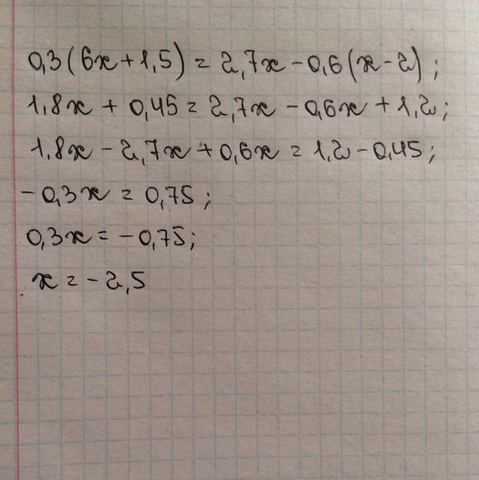 0,3(6x+1,5)=2,7x-0,6(x-2);
1,8x+0,45=2,7x-0,6x+1,2;
1,8x-2,7x+0,6x=1,2-0,45;
-0,3x=0,75;
0,3x=-0,75;
x=-2,5